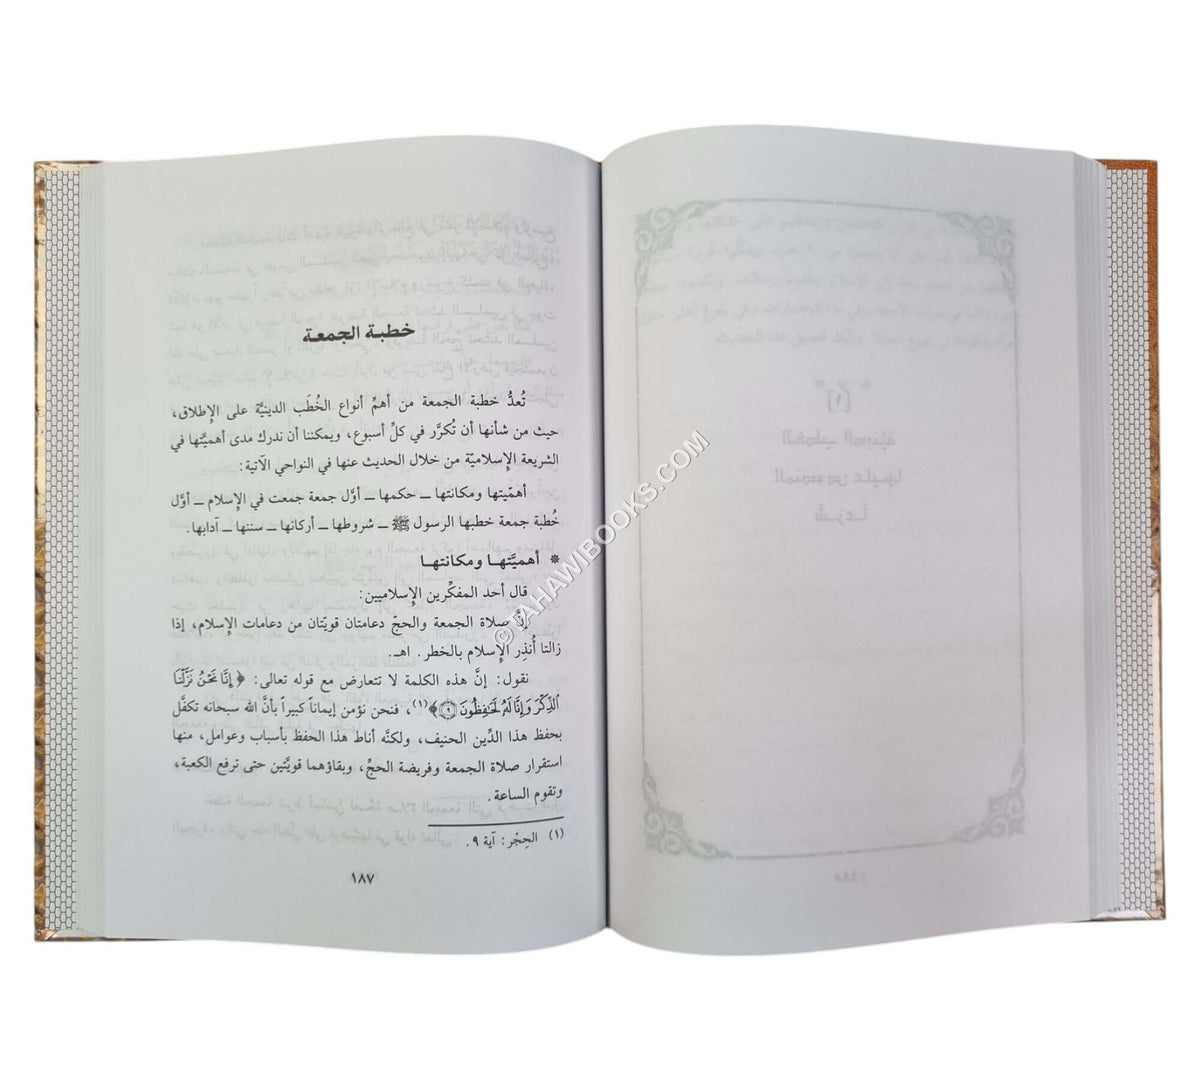 خطبة الجمعة
تُعدُّ خطبة الجمعة من أهمِّ أنواع الخُطَب الدينيَّة على الإطلاق،
حيث من شأنها أن تُكرَّر في كلِّ أسبوع، ويمكننا أن ندرك مدى أهميَّتها في
الشريعة الإسلاميّة من خلال الحديث عنها في النواحي الآتية:
أهمّيتها ومكانتها ــ حكمها ــ أوَّل جمعة جمعت في الإسلام ــ أوَّل
خُطبة جمعة خطبها الرسول ﷺ ــ شروطها ــ أركانها ــ سننها ــ آدابها.
* أهميَّتهـا ومكانتهـا
قال أحد المفكِّرين الإسلاميين:
إنَّ صلاة الجمعة والحجّ دعامتان قويّتان من دعامات الإسلام، إذا
زالتا أُنذِر الإسلام بالخطر. اهـ.
نقول: إنَّ هذه الكلمة لا تتعارض مع قوله تعالى: ﴿إِنَّا نَحْنُ نَزَّلْنَا
ٱلذِّكْرَ وَإِنَّا لَهُۥ لَحَٰفِظُونَ ۝٩﴾(١)، فنحن نؤمن إيماناً كبيراً بأنَّ الله سبحانه تكفَّل
بحفظ هذا الدِّين الحنيف، ولكنَّه أناط هذا الحفظ بأسباب وعوامل، منها
استقرار صلاة الجمعة وفريضة الحجِّ، وبقاؤهما قويَّتين حتى ترفع الكعبة،
وتقوم الساعة.
(١) الحِجْر: آية ٩.
١٨٧
© TAHAWIBOOKS.COM